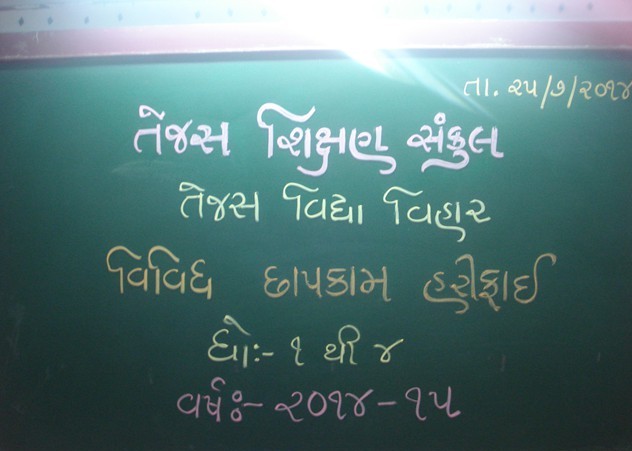 તા. ૨૫/૭/૨૦૧૪
તેજસ શિક્ષણ સંકુલ
તેજસ વિદ્યા વિહાર
વિવિધ છાપકામ હરીફાઈ
ધોઃ- ૧ થી ૪
વર્ષઃ- ૨૦૧૪-૧૫